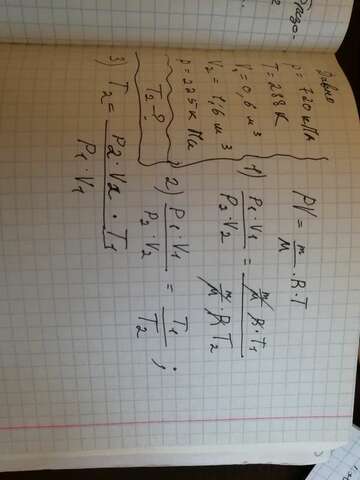 Дано
p = 720 кПа
T = 288 К
V₁ = 0,6 м³
V₂ = 1,6 м³
p = 225 к Па
T₂ - ?
PV = m/M · R · T
1) P₁ · V₁ / P₂ · V₂ = m/M R · T₁ / m/M · R T₂
2) P₁ · V₁ / P₂ · V₂ = T₁ / T₂ ;
3) T₂ = P₂ · V₂ · T₁ / P₁ · V₁